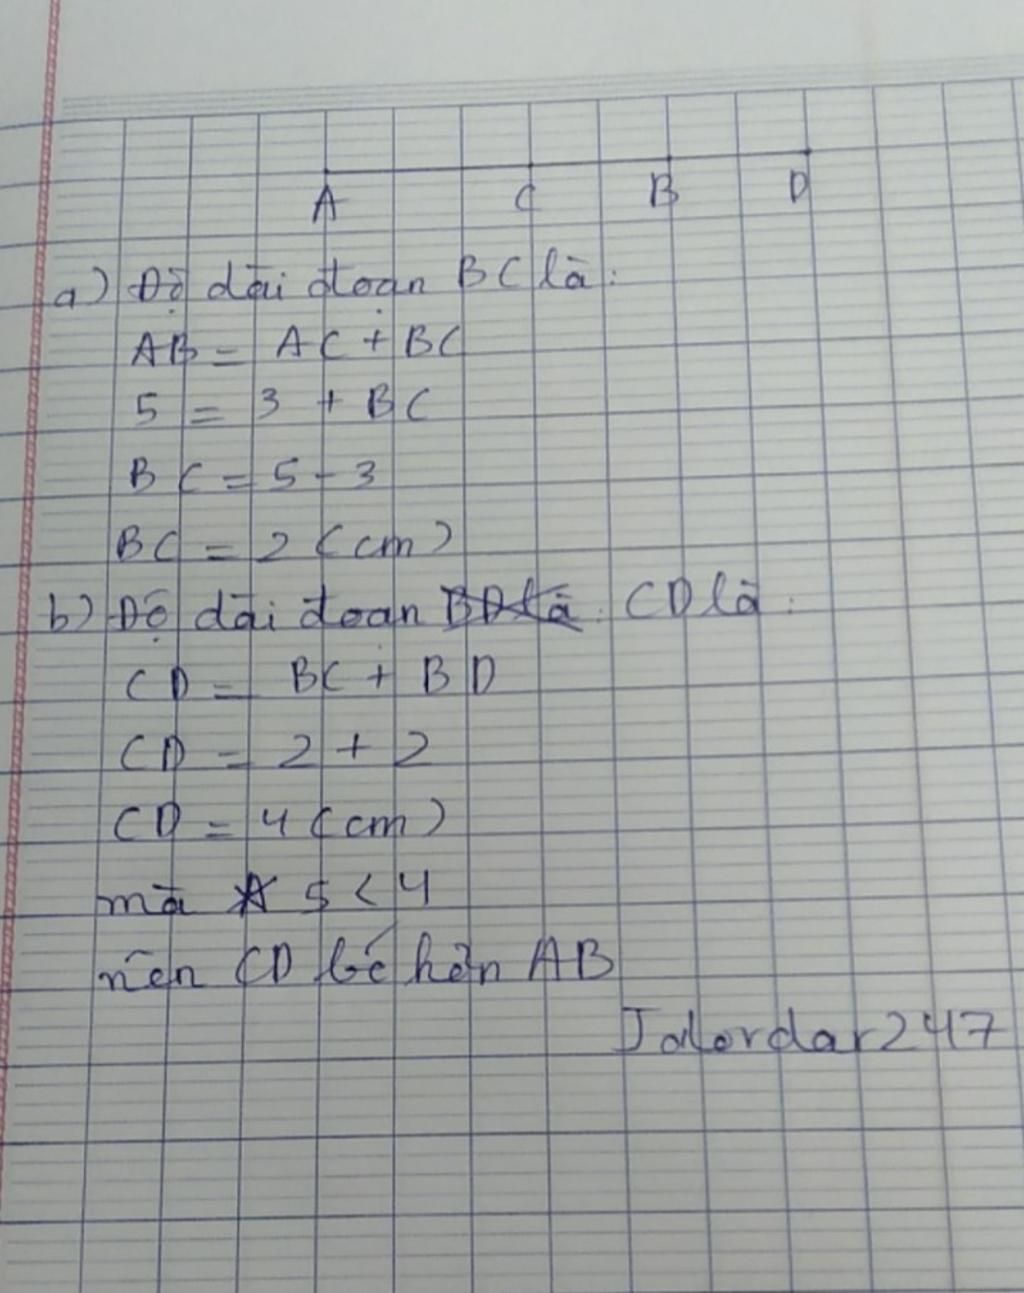 A C B D
a) Độ dài đoạn BC là:
AB = AC + BC
5 = 3 + BC
BC = 5 - 3
BC = 2 (cm)
b) Độ dài đoạn BD là: CD là:
CD = BC + BD
CD = 2 + 2
CD = 4 (cm)
mà A 5 < 4
nên CD bé hơn AB
Jalordar247